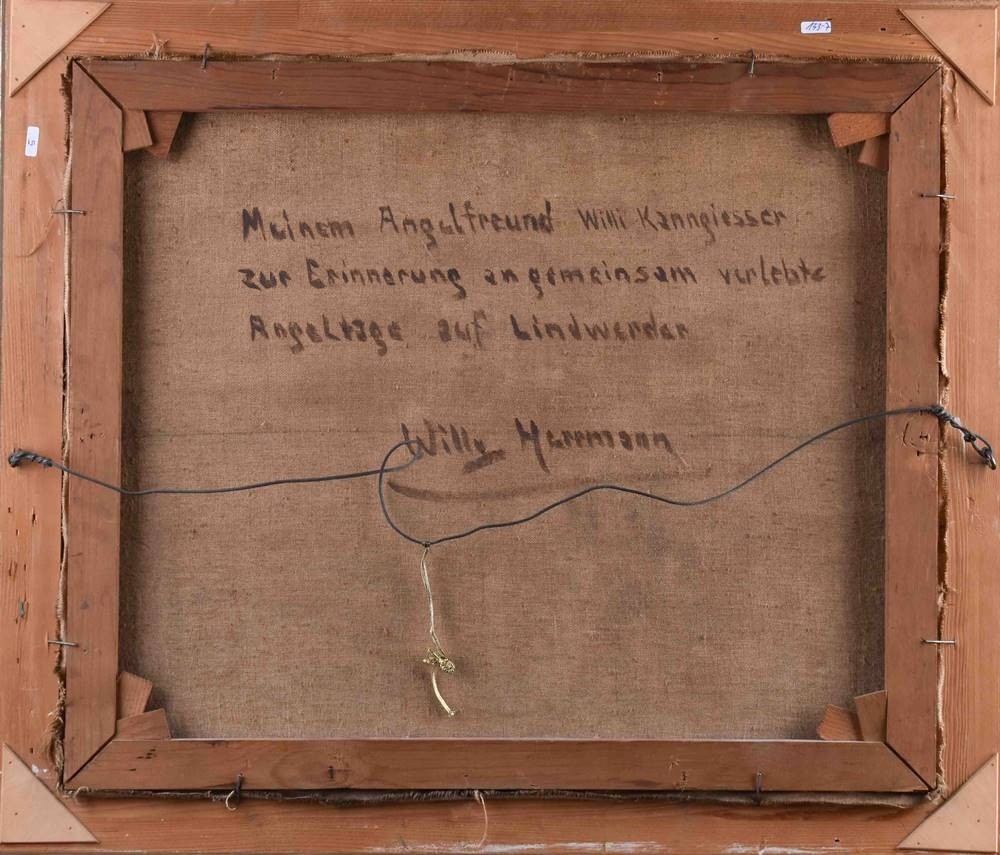 173-7
5
Meinem Angelfreund Willi Kanngiesser
zur Erinnerung an gemeinsam verlebte
Angeltage auf Lindwerder
Willy Herrmann